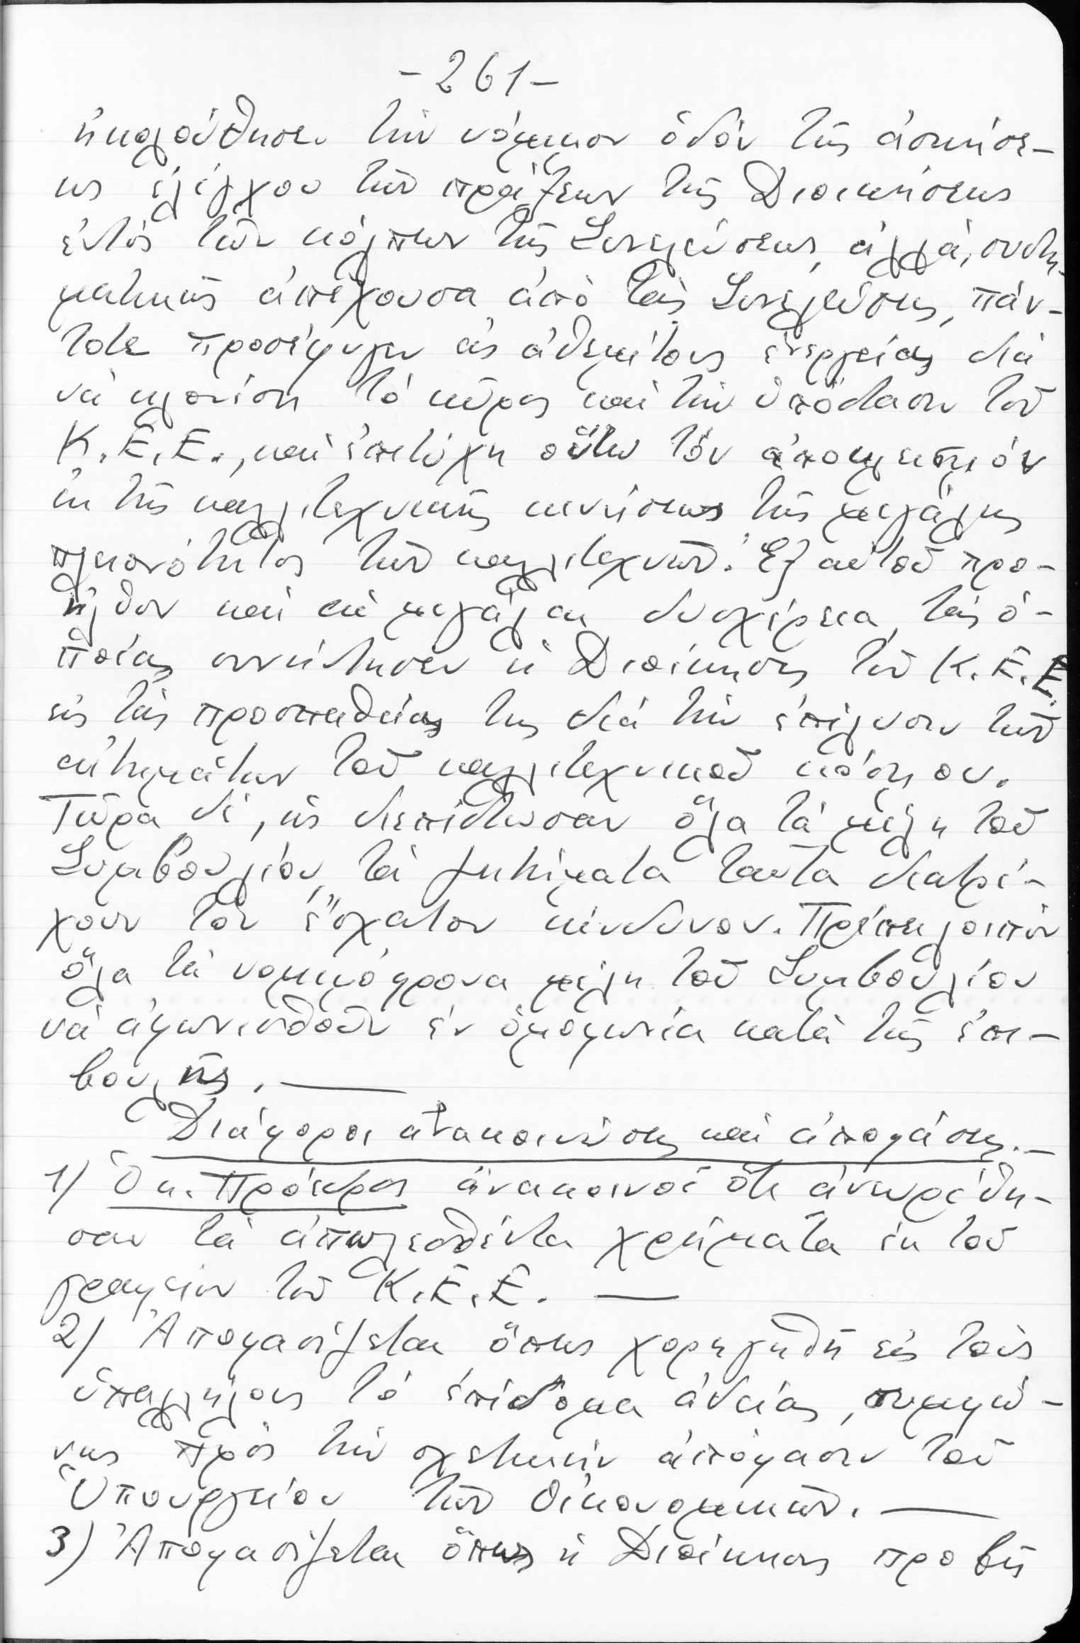 -261-
ἠκολούθησε τὴν νόμιμον ὁδόν τῆς ἀσκήσε-
ως ἐλέγχου τῶν πράξεων τῆς Διοικήσεως
ἐντός τῶν κόλπων τῆς Συνελεύσεως, ἀλλά, συστη-
ματικῶς ἀπέχουσα ἀπό τάς Συνελεύσεις, πάν-
τοτε προσέφυγεν εἰς ἀθεμίτους ἐνεργείας διά
νά κλονίσῃ τό κῦρος καί τήν ὑπόστασιν τοῦ
Κ.Ε.Ε., καί ἐπιτύχῃ οὕτω τόν ἀποκλεισμόν
ἐκ τῆς καλλιτεχνικῆς κινήσεως τῆς μεγάλης
πλειονότητος τῶν καλλιτεχνῶν. Ἐξ αὐτοῦ προ-
ῆλθον καί αἱ μεγάλαι δυσχέρειαι, τάς ὁ-
ποίας συνήντησεν ἡ Διοίκησις τοῦ Κ.Ε.Ε.
εἰς τάς προσπαθείας της διά τήν ἐπίλυσιν τῶν
αἰτημάτων τοῦ καλλιτεχνικοῦ κόσμου.
Τώρα δέ, ὡς διεπίστωσαν ὅλα τά μέλη τοῦ
Συμβουλίου, τά ζητήματα ταῦτα διατρέ-
χουν τόν ἔσχατον κίνδυνον. Πρέπει λοιπόν
ὅλα τά νομιμόφρονα μέλη τοῦ Συμβουλίου
νά ἀγωνισθοῦν ἐν ὁμοφωνίᾳ κατά τῆς ἐπι-
βουλῆς. —
Διάφοροι ἀνακοινώσεις καί ἀποφάσεις.-
1) Ὁ κ. Πρόεδρος ἀνακοινοῖ ὅτι ἀνευρέθη-
σαν τά ἀπωλεσθέντα χρήματα ἐκ τοῦ
γραφείου τοῦ Κ.Ε.Ε. —
2) Ἀποφασίζεται ὅπως χορηγηθῇ εἰς τούς
ὑπαλλήλους τό ἐπίδομα ἀδείας, συμφώ-
νως πρός τήν σχετικήν ἀπόφασιν τοῦ
Ὑπουργείου τῶν Οἰκονομικῶν. —
3) Ἀποφασίζεται ὅπως ἡ Διοίκησις προβῇ